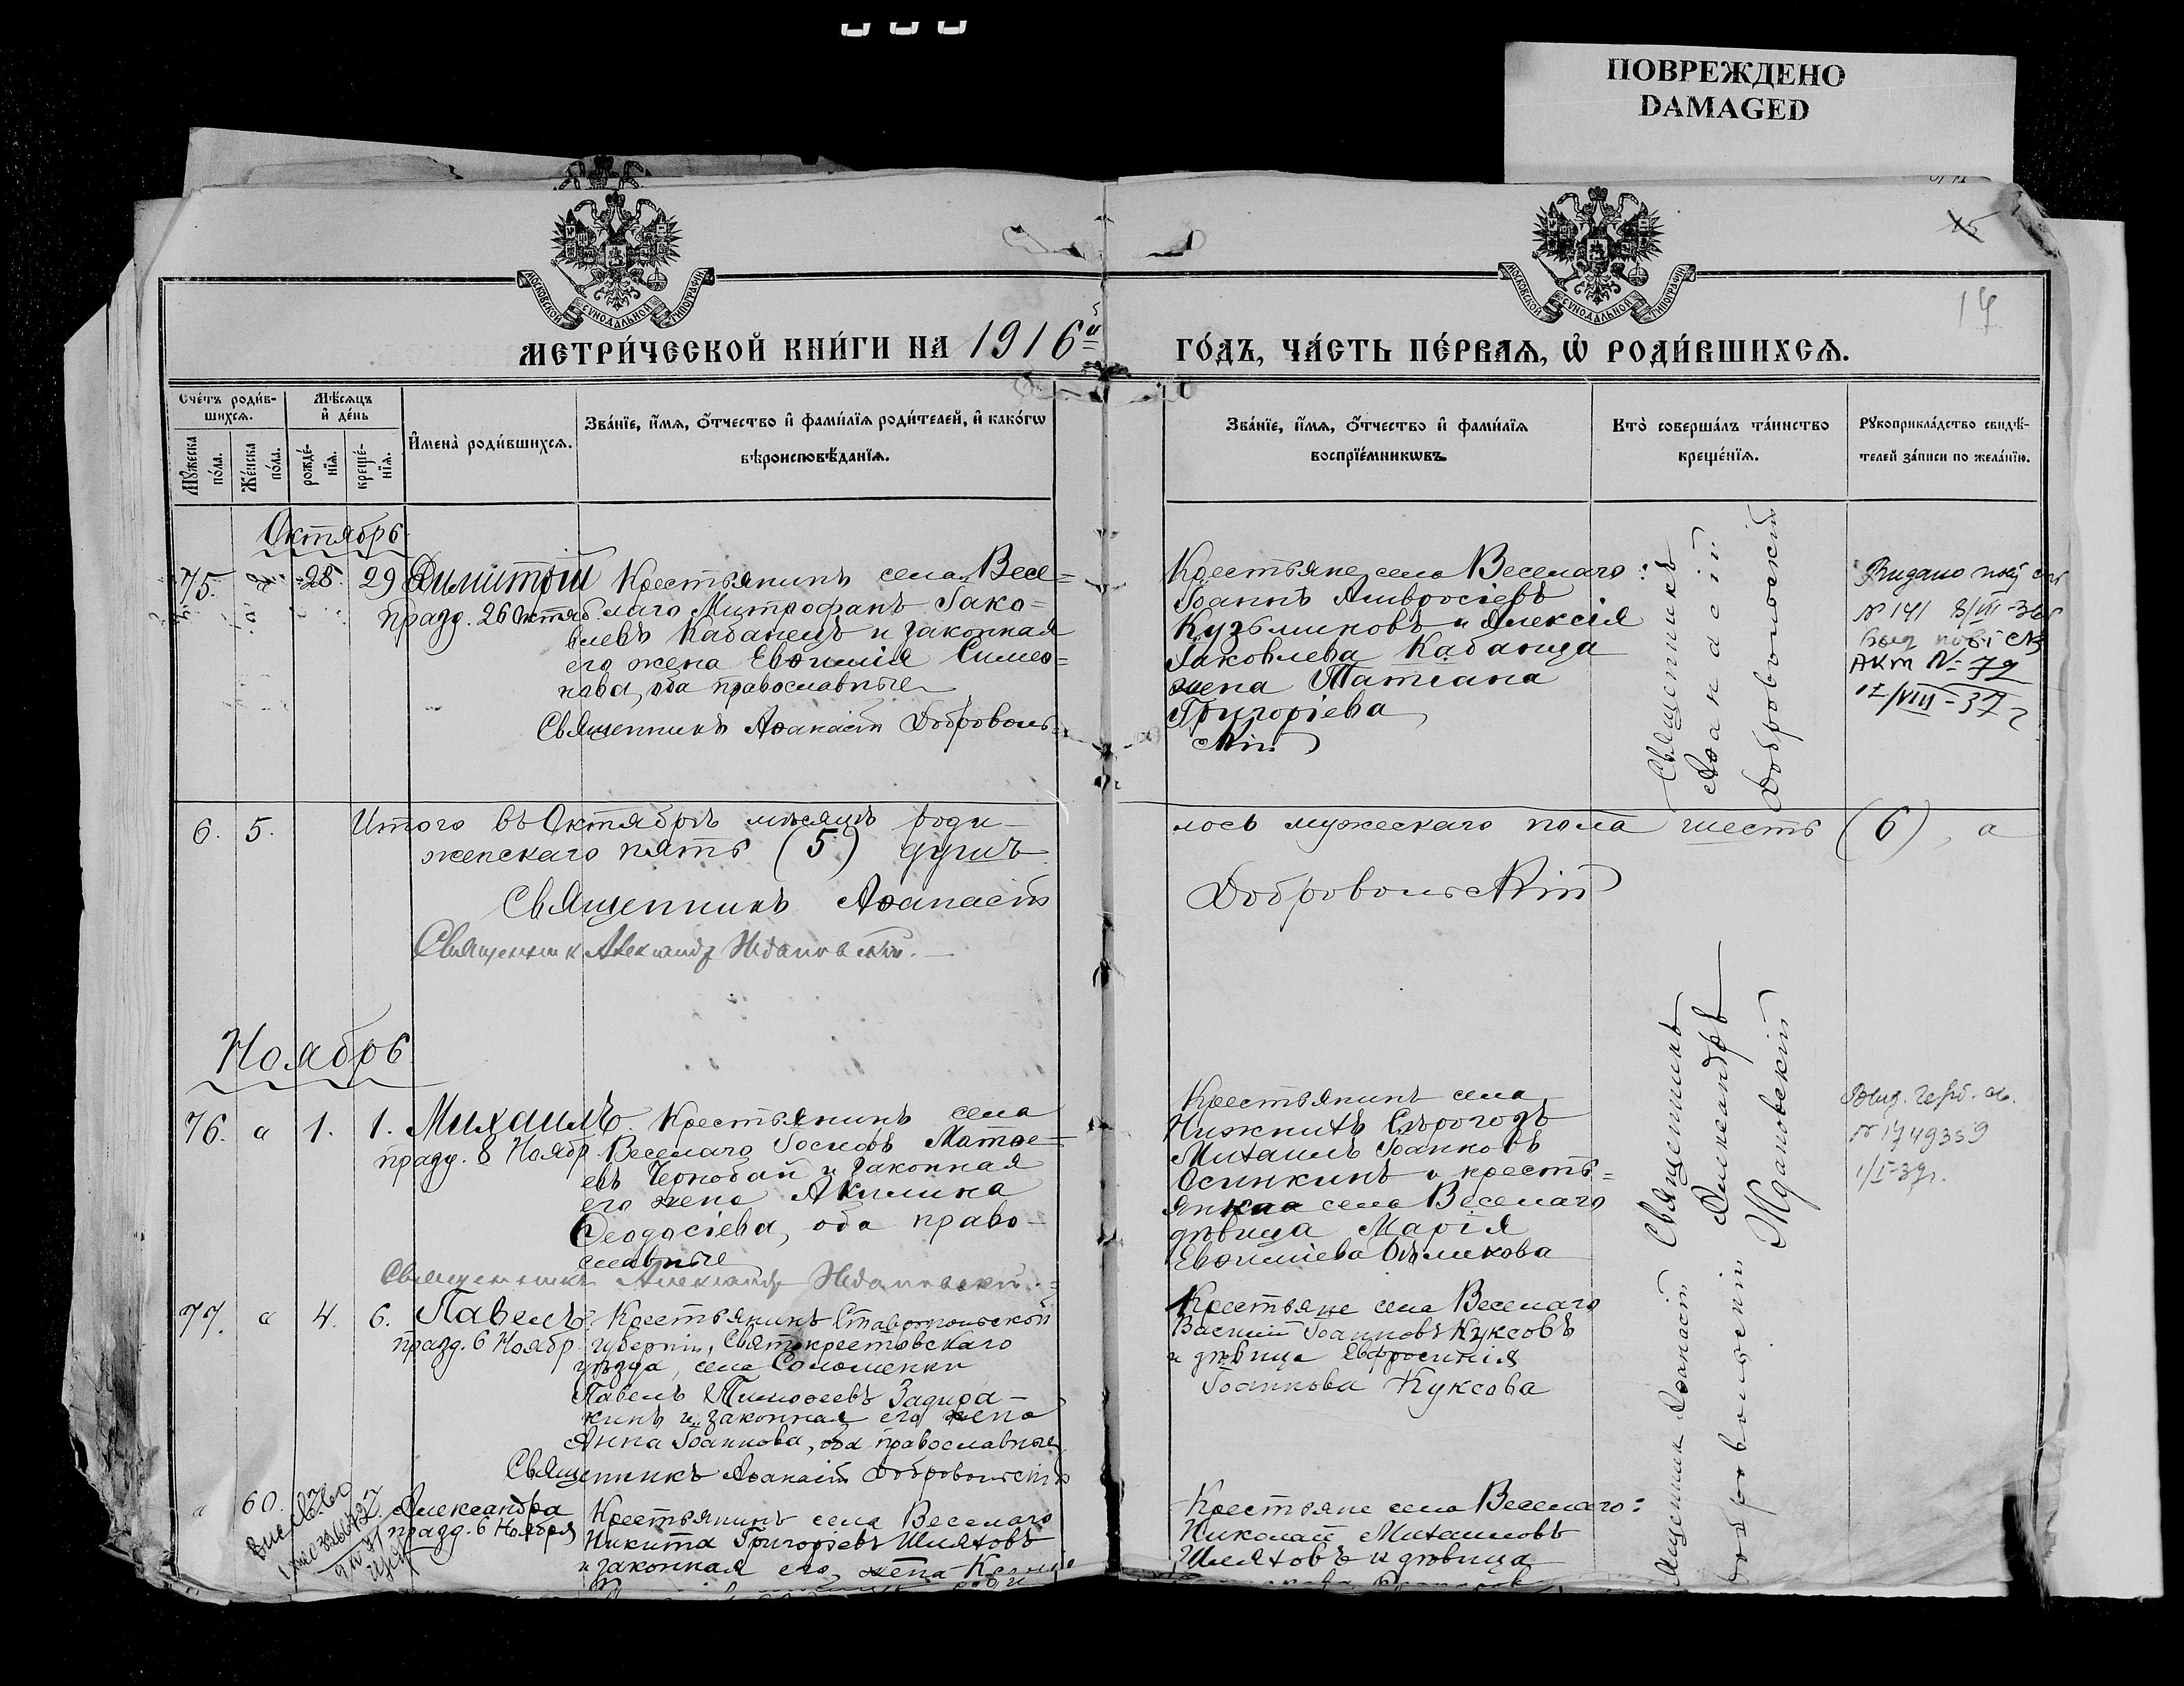 ПОВРЕЖДЕНО
DAMAGED
МОСКОВСКОЙ СѴНОДАЛЬНОЙ ТИПОГРАФІИ
МОСКОВСКОЙ СѴНОДАЛЬНОЙ ТИПОГРАФІИ
15
МЕТРИ́ЧЕСКОЙ КНИ́ГИ НА 1916й
ГО́ДЪ, ЧА́СТЬ ПЕ́РВАѦ, Ѡ РОДИ́ВШИХСѦ.
Сче́тъ роди́в-
шихсѧ.
Мѣ́сѧцъ
и҆ де́нь
Мꙋ́жеска
по́ла.
Же́нска
по́ла.
рожде́-
нїѧ.
креще́-
нїѧ.
И҆мена̀ роди́вшихсѧ.
Зва́нїе, и҆́мѧ, ѻ҆́тчество и҆ фами́лїѧ роди́телей, и҆ како́гѡ
вѣроисповѣ́данїѧ.
Зва́нїе, и҆́мѧ, ѻ҆́тчество и҆ фами́лїѧ
воспрїе́мникѡвъ.
Кто̀ соверша́лъ та́инство
креще́нїѧ.
Рꙋкоприкла́дство свидѣ́-
телей за́писи по жела́нїю.
Октябрь
75. 28. 29 Димитрій Крестьянинъ села Весе=
празд. 26 Октяб. лаго Митрофанъ Іако=
влевъ Кабанецъ и законная
его жена Евѳимія Симео=
нова, оба православные
Священникъ Аѳанасій Доброволь=
Крестьяне села Веселаго:
Іоаннъ Амвросіевъ
Кузьминовъ и Алексія
Іаковлева Кабанца
жена Татіана
Григоріева
скій
Священникъ
Аѳанасій
Добровольскій
№ 141 8/VIII-36
Акт № 79
6. 5. Итого въ Октябрѣ мѣсяцѣ роди-
лось мужескаго пола шесть (6), а
женскаго пять (5) душъ
Священникъ Аѳанасій
Добровольскій
Священник Александр Ждановскій.
Ноябрь
76. а 1. 1. Михаилъ. Крестьянинъ села
празд. 8 Ноябр. Веселаго Іосифъ Матѳе=
евъ Чернобай и законная
его жена Акилина
Ѳеодосіева, оба право-
славные
Священникъ Александръ Ждановскій.
Крестьянинъ села
Михаилъ Іоанновъ
Осинкинъ и кресть=
янка села Веселаго
дѣвица Марія
Евѳиміева Бѣликова
Священникъ
Александръ
Ждановскій
№ 1749359
1/I-37г.
77. а 4. 6. Павелъ. Крестьянинъ Ставропольской
празд. 6 Ноябр. губерніи, Святокрестовскаго
уѣзда, села Соломенки
Павелъ Тимоѳеевъ Задира-
кинъ и законная его жена
Анна Іоаннова, оба православные
Священникъ Аѳанасій Добровольскій
Крестьяне села Веселаго
Василій Іоанновъ Куксовъ
и дѣвица Евфросинія
Іоаннова Куксова
Священник Аѳанасій
Добровольскій
а 60. Александра
празд. 6 Ноября
Крестьянинъ села Веселаго
Никита Григоріевъ Шляховъ
и законная его жена
Крестьяне села Веселаго:
Николай Михаиловъ
Шляховъ и дѣвица